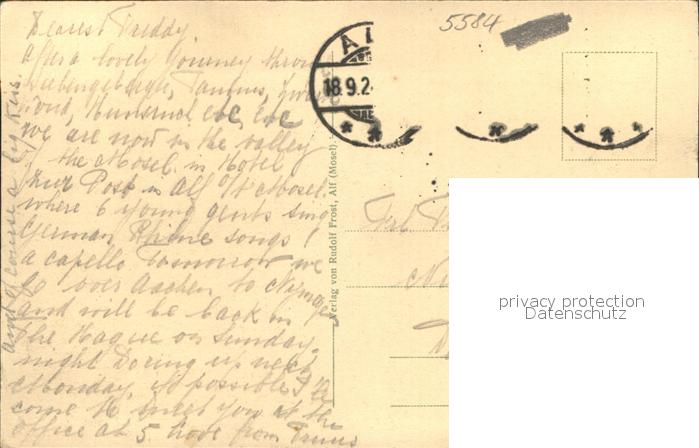 5584
Dearest Freddy
After a lovely journey through
Siebengebirge, Taunus,
Hunsruck etc, etc
we are now in the valley
of the Mosel in Hotel
Zur Post in Alf o/t Mosel
where 6 young gents sing
German Rhine songs
a capello Tomorrow we
go over Aachen to
and will be back in
The Hague on Sunday
night Doring up next
Monday, if possible I'll
come to meet you at the
office at 5. Love from
and of course a big kiss.
AL
18.9.2
Verlag von Rudolf Frost, Alf (Mosel).
privacy protection
Datenschutz